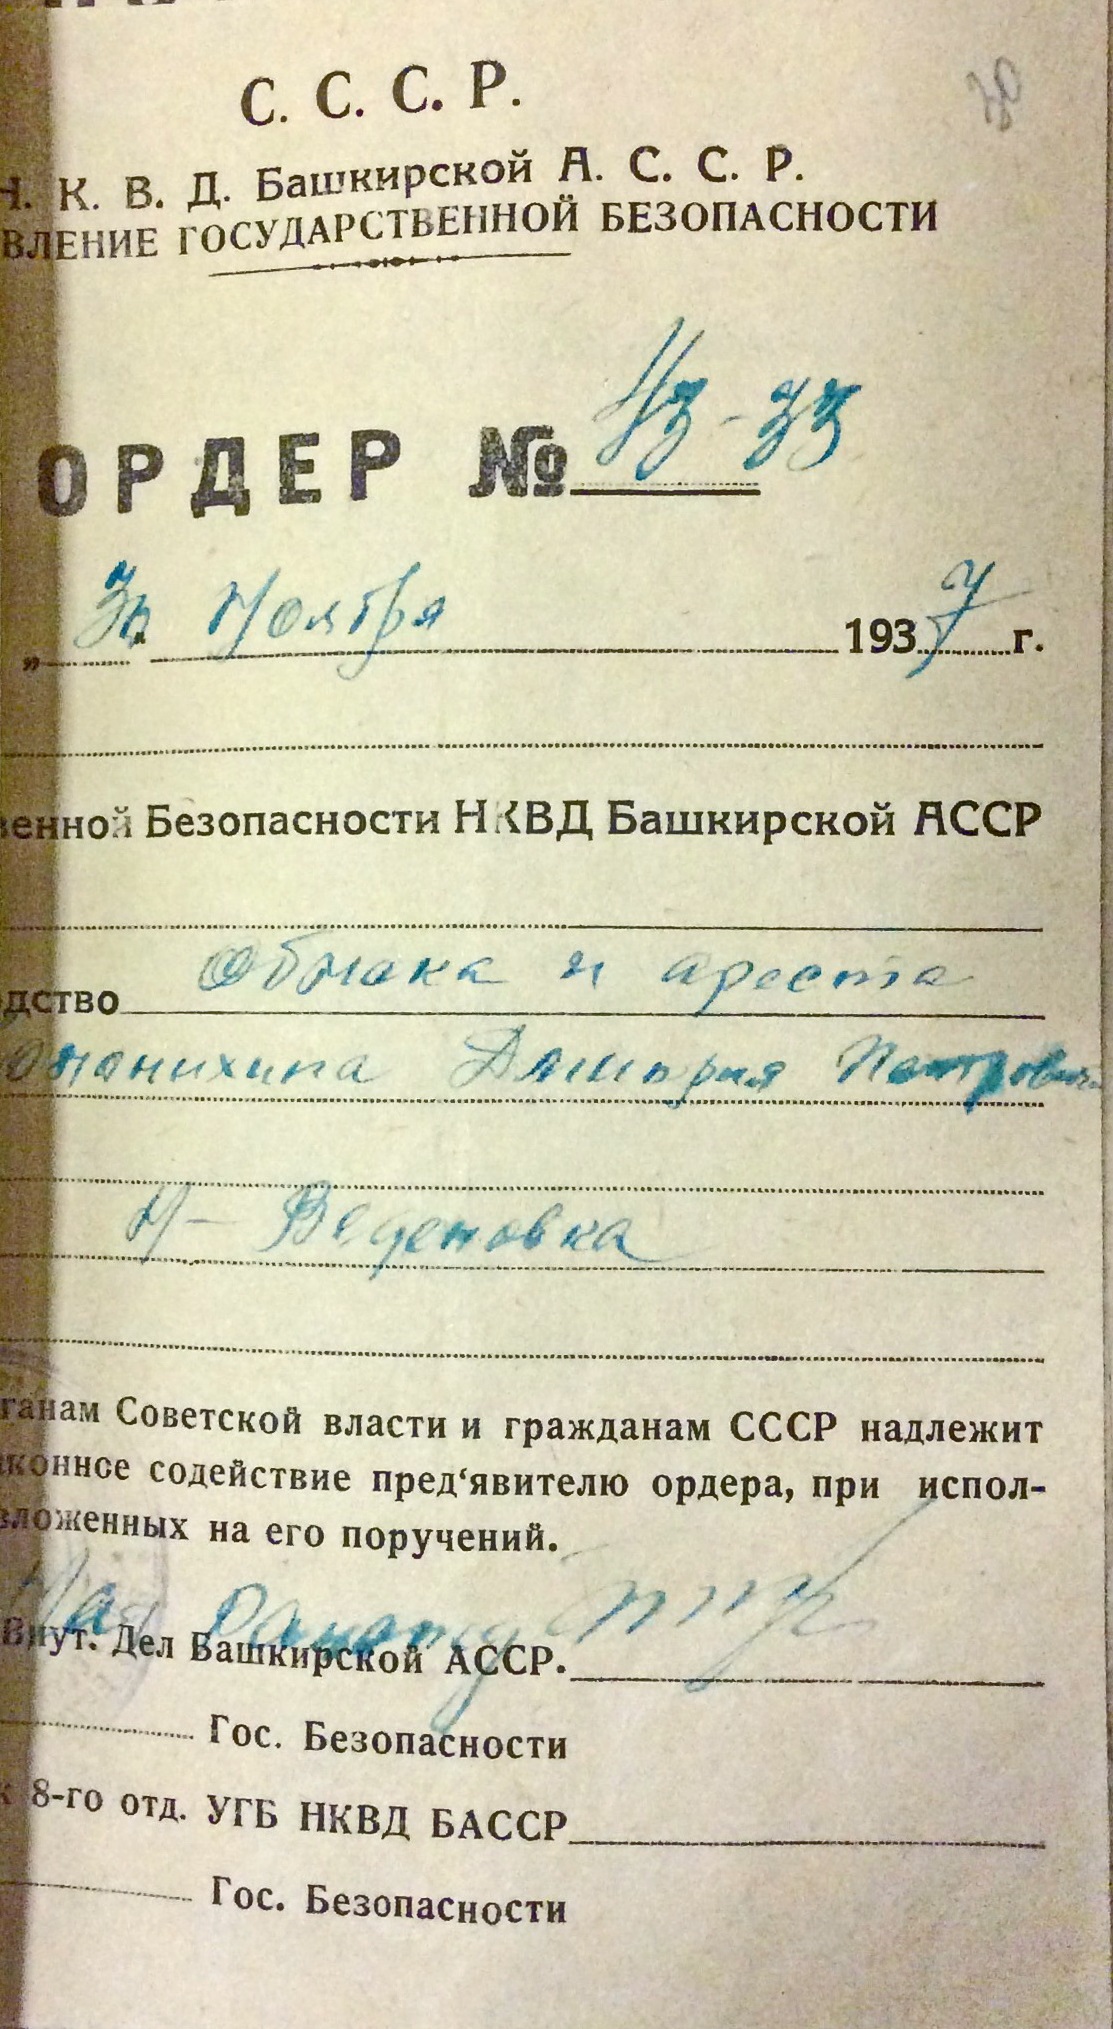 С. С. С. Р.
Н. К. В. Д. Башкирской А. С. С. Р.
ВЛЕНИЕ ГОСУДАРСТВЕННОЙ БЕЗОПАСНОСТИ
ОРДЕР №
„ Ноября 1937 г.
венной Безопасности НКВД Башкирской АССР
Обыска и ареста
дство
Дмитрия Петрович
Веденовка
ганам Советской власти и гражданам СССР надлежит
конное содействие пред‘явителю ордера, при испол-
зложенных на его поручений.
Внут. Дел Башкирской АССР.
Гос. Безопасности
к 8-го отд. УГБ НКВД БАССР
Гос. Безопасности